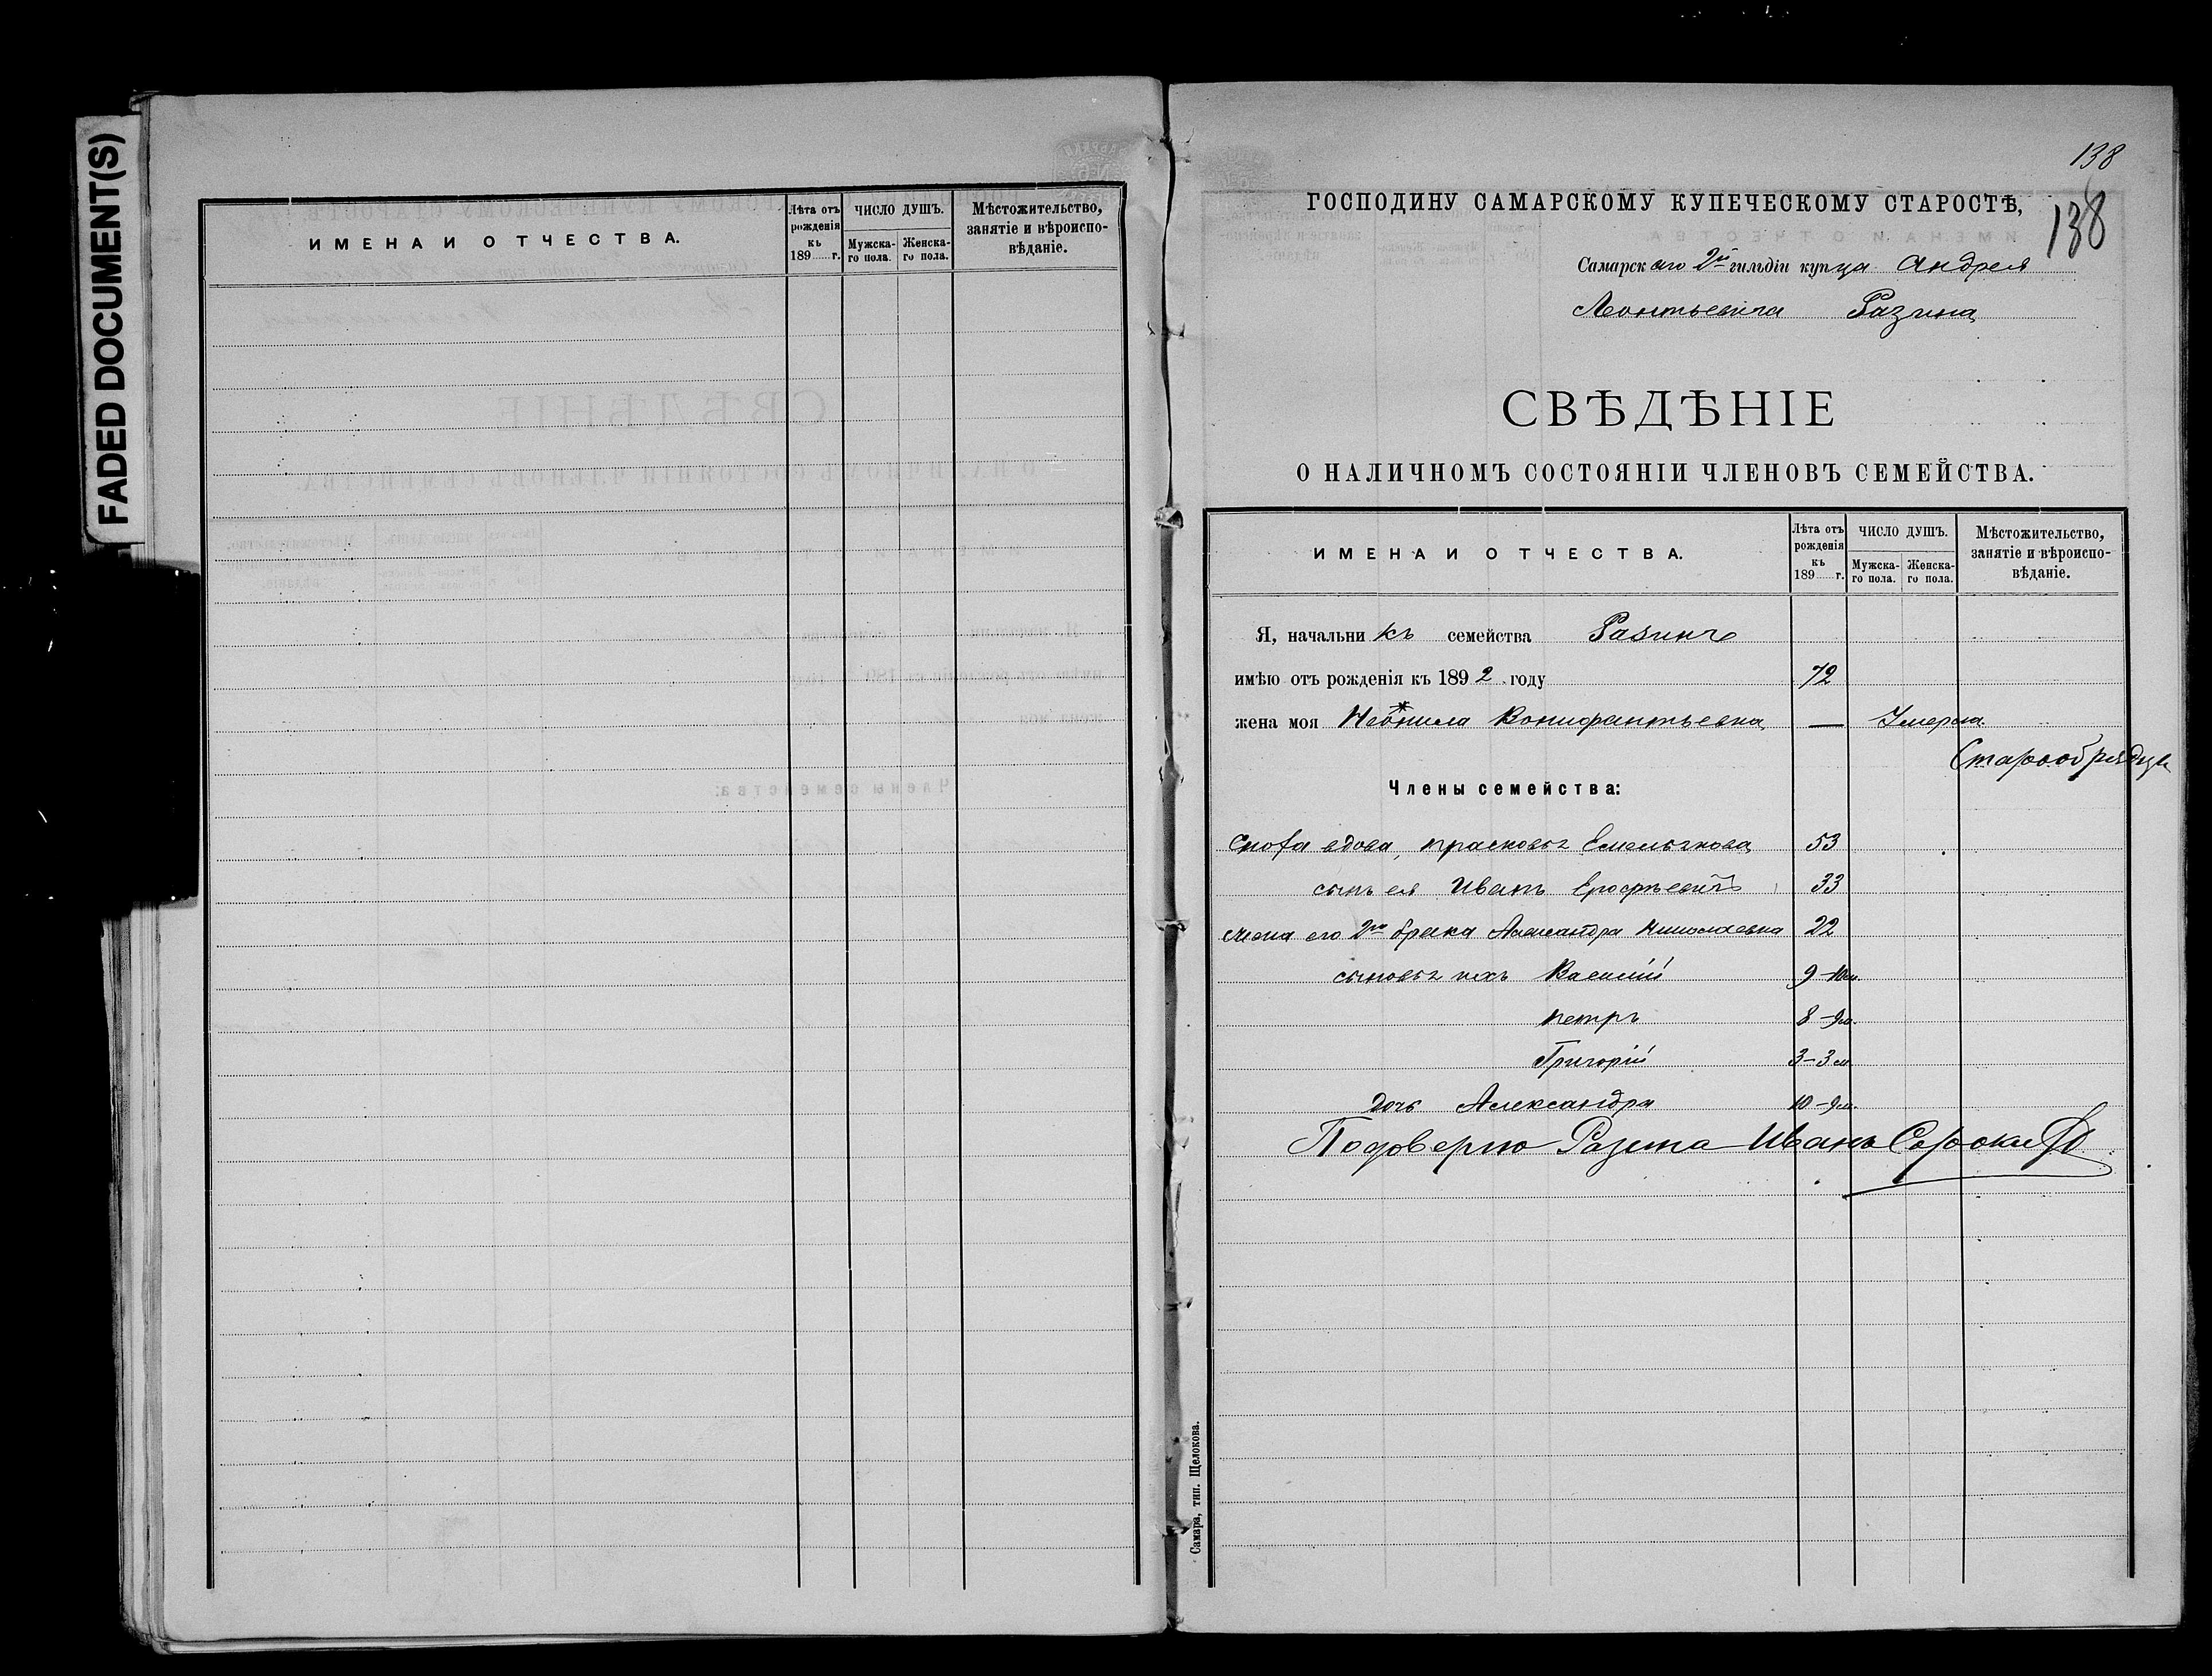 FADED DOCUMENT(S)
ИМЕНА И ОТЧЕСТВА.
Лѣта отъ рожденія къ 189 г.
ЧИСЛО ДУШЪ.
Мужска-го пола.
Женска-го пола.
Мѣстожительство, занятіе и вѣроиспо-вѣданіе.
138
138
ГОСПОДИНУ САМАРСКОМУ КУПЕЧЕСКОМУ СТАРОСТѢ,
Самарскаго 2й гильдіи купца Андрея
Леонтьевича Разина
СВѢДѢНІЕ
О НАЛИЧНОМЪ СОСТОЯНІИ ЧЛЕНОВЪ СЕМЕЙСТВА.
ИМЕНА И ОТЧЕСТВА.
Лѣта отъ рожденія къ 189 г.
ЧИСЛО ДУШЪ.
Мужска-го пола.
Женска-го пола.
Мѣстожительство, занятіе и вѣроиспо-вѣданіе.
Я, начальникъ семейства Разинъ
имѣю отъ рожденія къ 1892 году 72
жена моя Неонила Вонифантьевна — Умерла
Старообрядцы
Члены семейства:
Сноха вдова, Прасковья Емельянова 53
сынъ ея Иванъ Ерофѣевичъ 33
жена его 2го брака Александра Николаевна 22
сыновья ихъ Василій 9-10м.
Петръ 8-9м.
Григорій 3-3м
дочь Александра 10-9м.
По доверію Разина Иванъ
Самара, тип. Щелокова.